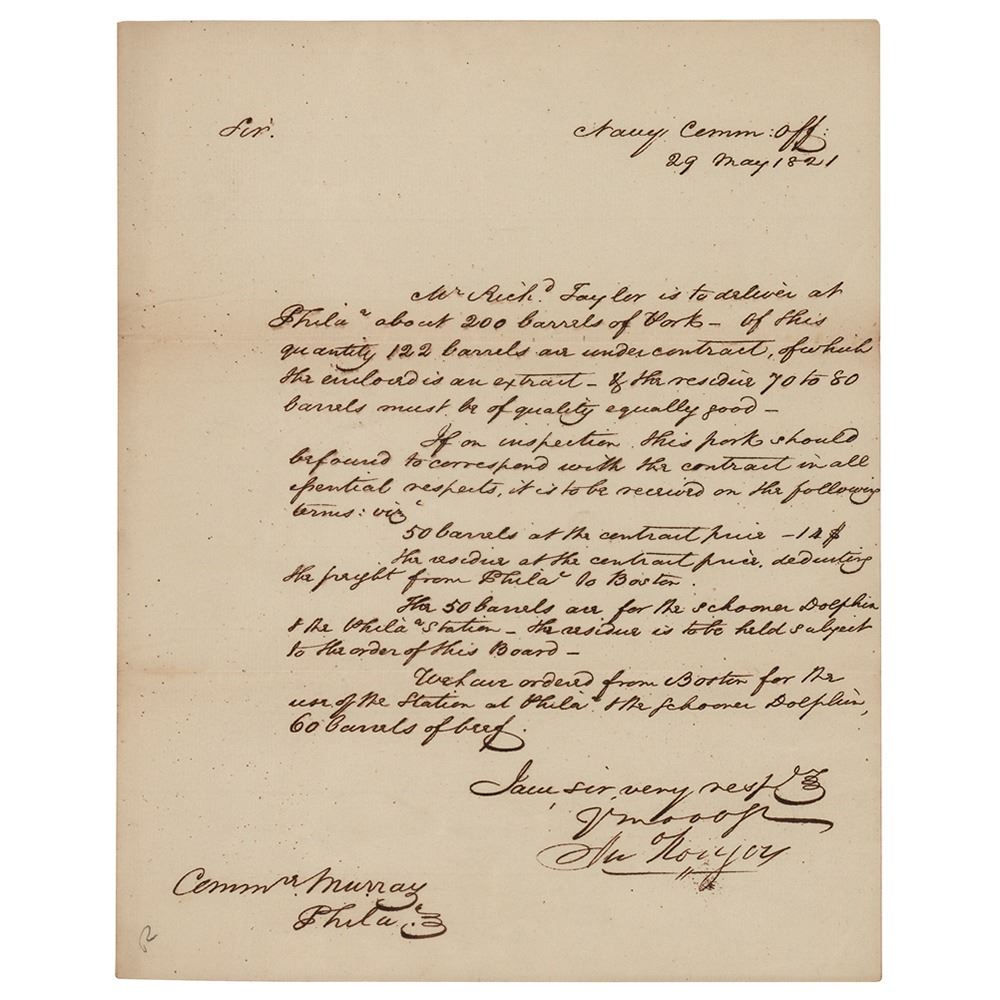 Sir.
Navy Comm: Off:
29 May 1821
Mr. Richd. Taylor is to deliver at
Philaa about 200 barrels of Pork - Of this
quantity 122 barrels are under contract, of which
the enclosed is an extract - & the residue 70 to 80
barrels must be of quality equally good -
If on inspection this pork should
be found to correspond with the contract in all
essential respects, it is to be received on the following
terms: viz
50 barrels at the contract price - 14 $
the residue at the contract price, deducting
the freight from Phila. to Boston.
The 50 barrels are for the schooner Dolphin
& the Phila. Station - the residue is to be held subject
to the order of this Board -
We have ordered from Boston for the
use of the Station at Phila. & the schooner Dolphin,
60 barrels of beef.
I am, sir, very respy
Yr mo ob St
Jno Rodgers
Commre. Murray
Phila.